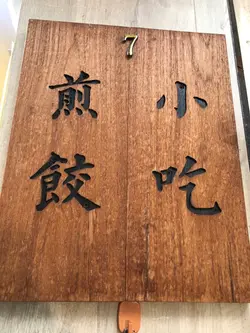 7
小吃
煎餃